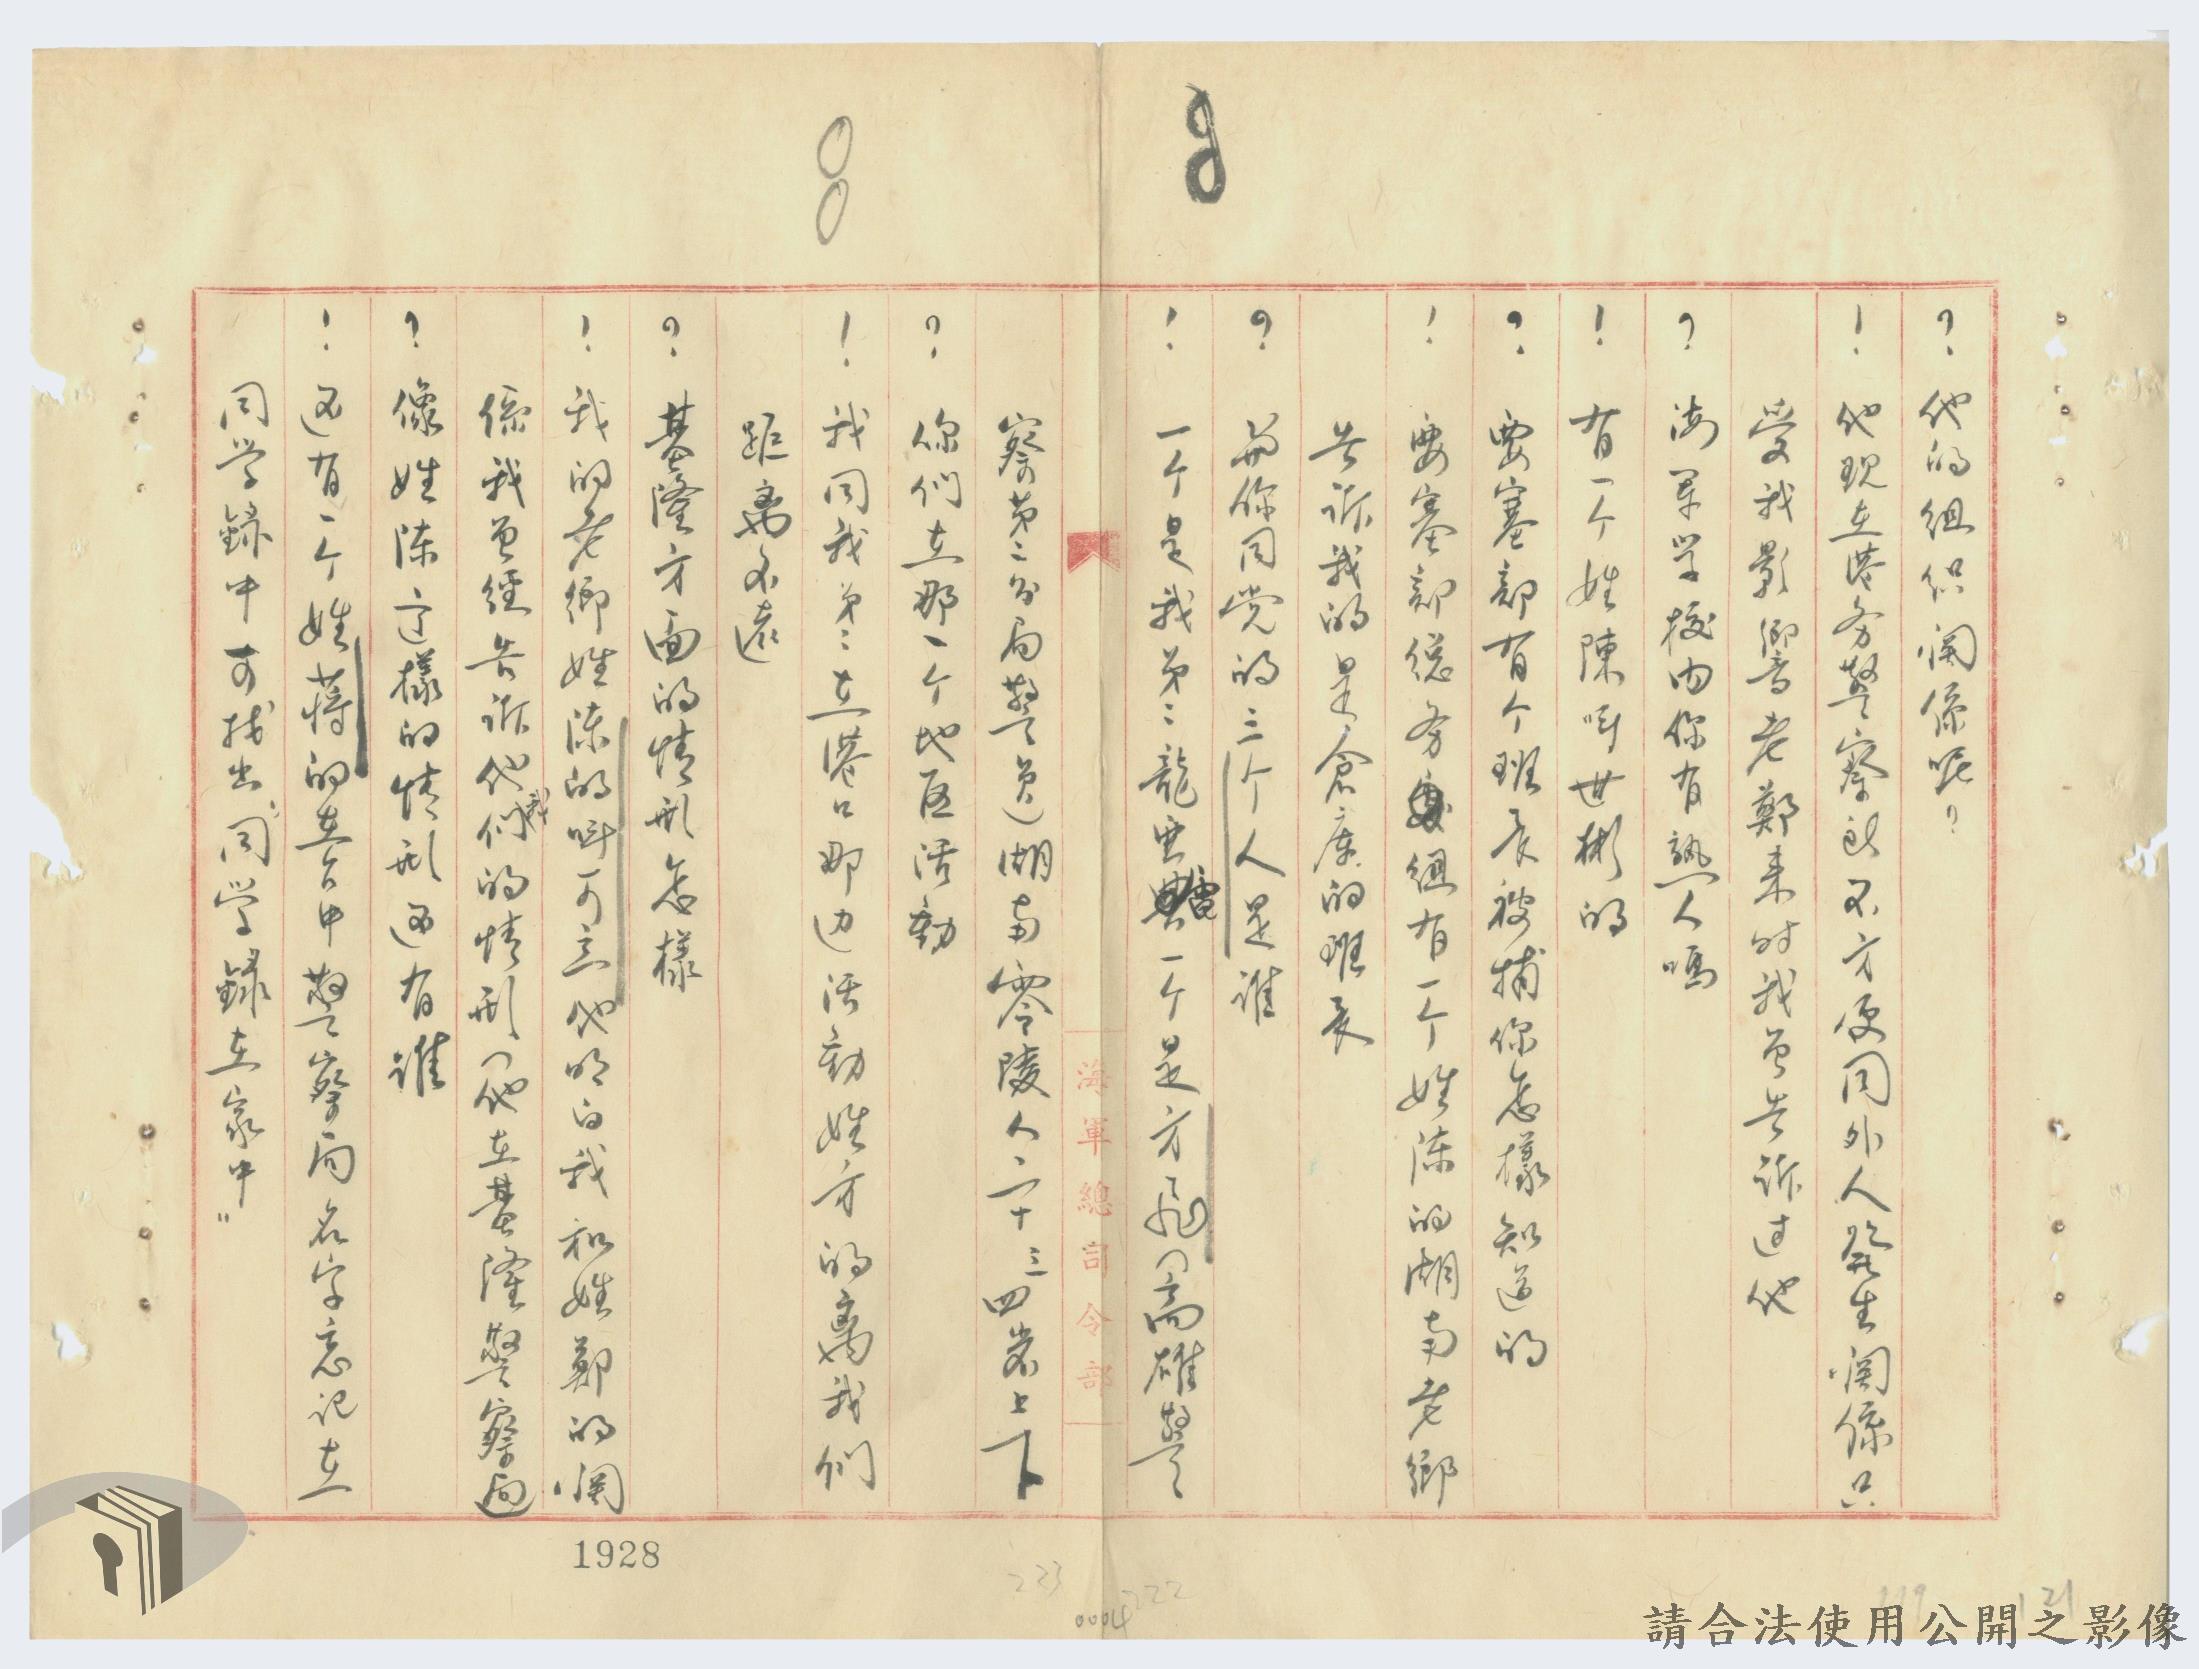 8
00
? 他的组织関係呢?
! 他現在港务警察所不方便同外人發生関係只
受我影响当老鄭来时我曾告诉过他
? 海军学校内你有熟人嗎
! 有一个姓陳叫世彬的
? 要塞部有个班长被捕你怎樣知道的
! 要塞部总务组有一个姓陈的湖南老鄉
告诉我的是倉庫的班长
? 与你同党的三个人是谁
! 一个是我弟弟龍 一个是方飛(高雄警
海軍總司令部
察第二分局警員湖南零陵人二十三四岁上下
? 你们在那一个地区活動
! 我同我弟弟在港口那边活動姓方的离我们
距离不遠
? 基隆方面的情形怎樣
! 我的老鄉姓陈的叫可立他明白我和姓鄭的関
係我曾經告诉他们我的情形(他在基隆警察局
? 像姓陈这樣的情形还有谁
! 还有一个姓蒋的在台中警察局名字忘记在
同学録中可找出"同学録在家中"
1928
223
222
0004
119
121
請合法使用公開之影像